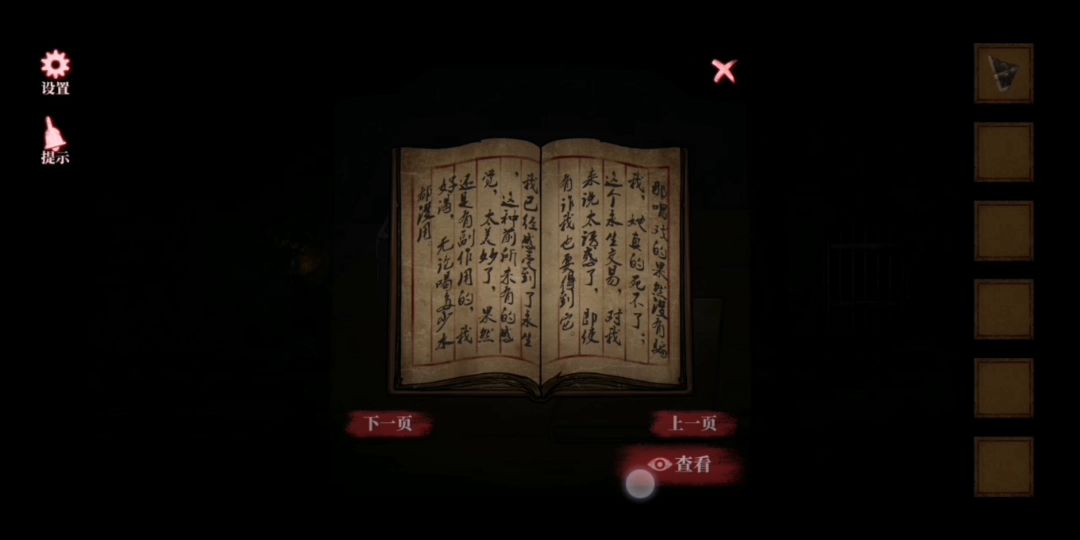 设置
提示
那唱戏的果然没有骗
我，她真的死不了；
这个永生交易，对我
来说太诱惑了，即使
有诈我也要得到它。
我已经感受到了永生
，这种前所未有的感
觉，太美妙了，果然
还是有副作用的，我
好渴，无论喝多少水
都没用
下一页
上一页
查看